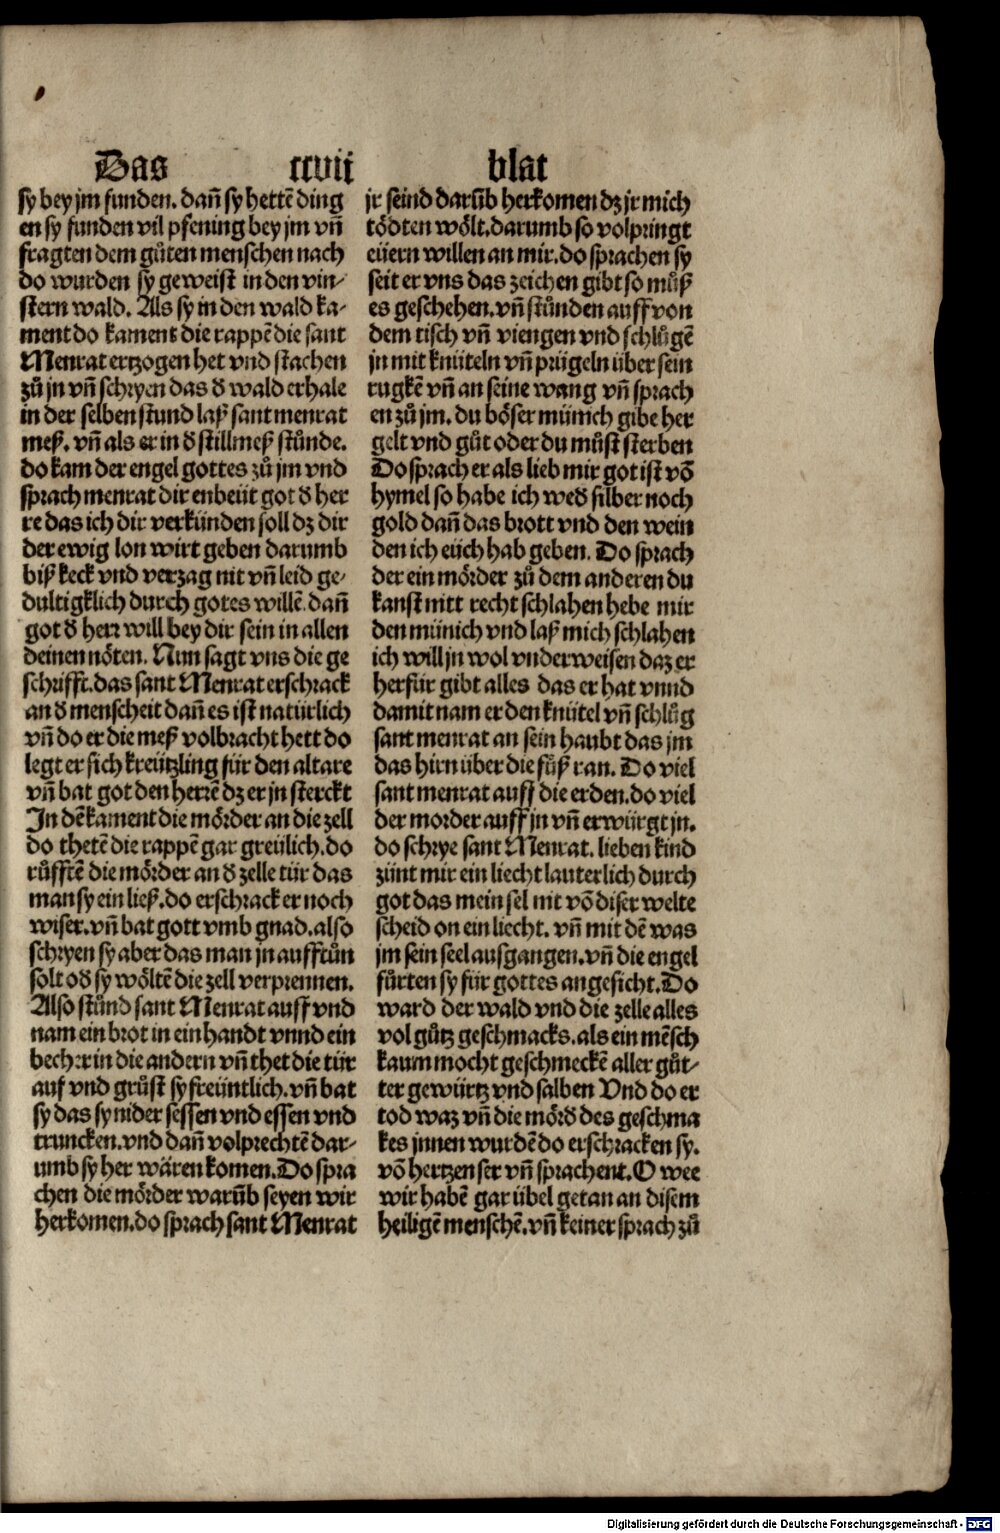 Das ccvii blat
sy bey jm funden. dañ sy hettē ding
en sy funden vil pfening bey jm vñ
fragten dem gůten menschen nach
do wurden sy geweist in den vin-
stern wald. Als sy in den wald ka-
ment do kament die rappē die sant
Menrat ertzogen het vnd stachen
zů jn vñ schryen das d̕ wald erhale
in der selben stund laß sant menrat
meß. vñ als er in d̕ stillmeß stůnde.
do kam der engel gottes zů jm vnd
sprach menrat dir enbeüt got d̕ her
re das ich dir verkünden soll dz dir
der ewig lon wirt geben darumb
biß keck vnd verzag nit vñ leid ge-
dultigklich durch gotes willē. dañ
got d̕ herr will bey dir sein in allen
deinen nöten. Nun sagt vns die ge
schrifft. das sant Menrat erschrack
an d̕ menscheit dañ es ist natürlich
vñ do er die meß volbracht hett do
legt er sich kreützling für den altare
vñ bat got den herrē dz er jn sterckt
In dē kament die mörder an die zell
do thetē die rappē gar greülich. do
růfftē die mörder an d̕ zelle tür das
man sy ein ließ. do erschrack er noch
wiser. vñ bat gott vmb gnad. also
schryen sy aber das man jn aufftůn
solt od̕ sy wöltē die zell verprennen.
Also stůnd sant Menrat auff vnd
nam ein brot in ein handt vnnd ein
becher in die andern vñ thet die tür
auf vnd grůst sy freüntlich. vñ bat
sy das sy nider sessen vnd essen vnd
truncken. vnd dañ volprechtē dar-
umb sy her wären komen. Do spra
chen die mörder warūb seyen wir
herkomen. do sprach sant Menrat
jr seind darūb herkomen dz jr mich
tödten wölt. darumb so volpringt
eüern willen an mir. do sprachen sy
seit er vns das zeichen gibt so můß
es geschehen. vñ stůnden auff von
dem tisch vñ viengen vnd schlůgē
jn mit knüteln vñ prügeln über sein
rugkē vñ an seine wang vñ sprach
en zů jm. du böser münich gibe her
gelt vnd gůt oder du můst sterben
Do sprach er als lieb mir got ist vō
hymel so habe ich wed̕ silber noch
gold dañ das brott vnd den wein
den ich eüch hab geben. Do sprach
der ein mörder zů dem anderen du
kanst nitt recht schlahen hebe mir
den münich vnd laß mich schlahen
ich will jn wol vnderweisen daz er
herfür gibt alles das er hat vnnd
damit nam er den knütel vñ schlůg
sant menrat an sein haubt das jm
das hirn über die füß ran. Do viel
sant menrat auff die erden. do viel
der morder auff jn vñ erwürgt jn.
do schrye sant Menrat. lieben kind
zünt mir ein liecht lauterlich durch
got das mein sel nit vō diser welte
scheid on ein liecht. vñ mit dē was
jm sein seel ausgangen. vñ die engel
fürten sy für gottes angesicht. Do
ward der wald vnd die zelle alles
vol gůtz geschmacks. als ein mēsch
kaum mocht geschmeckē aller gůt-
ter gewürtz vnd salben Vnd do er
tod waz vñ die mörd̕ des geschma
kes jnnen wurdē do erschracken sy.
vō hertzen ser vñ sprachent. O wee
wir habē gar übel getan an disem
heiligē menschē. vñ keiner sprach zů
Digitalisierung gefördert durch die Deutsche Forschungsgemeinschaft - DFG